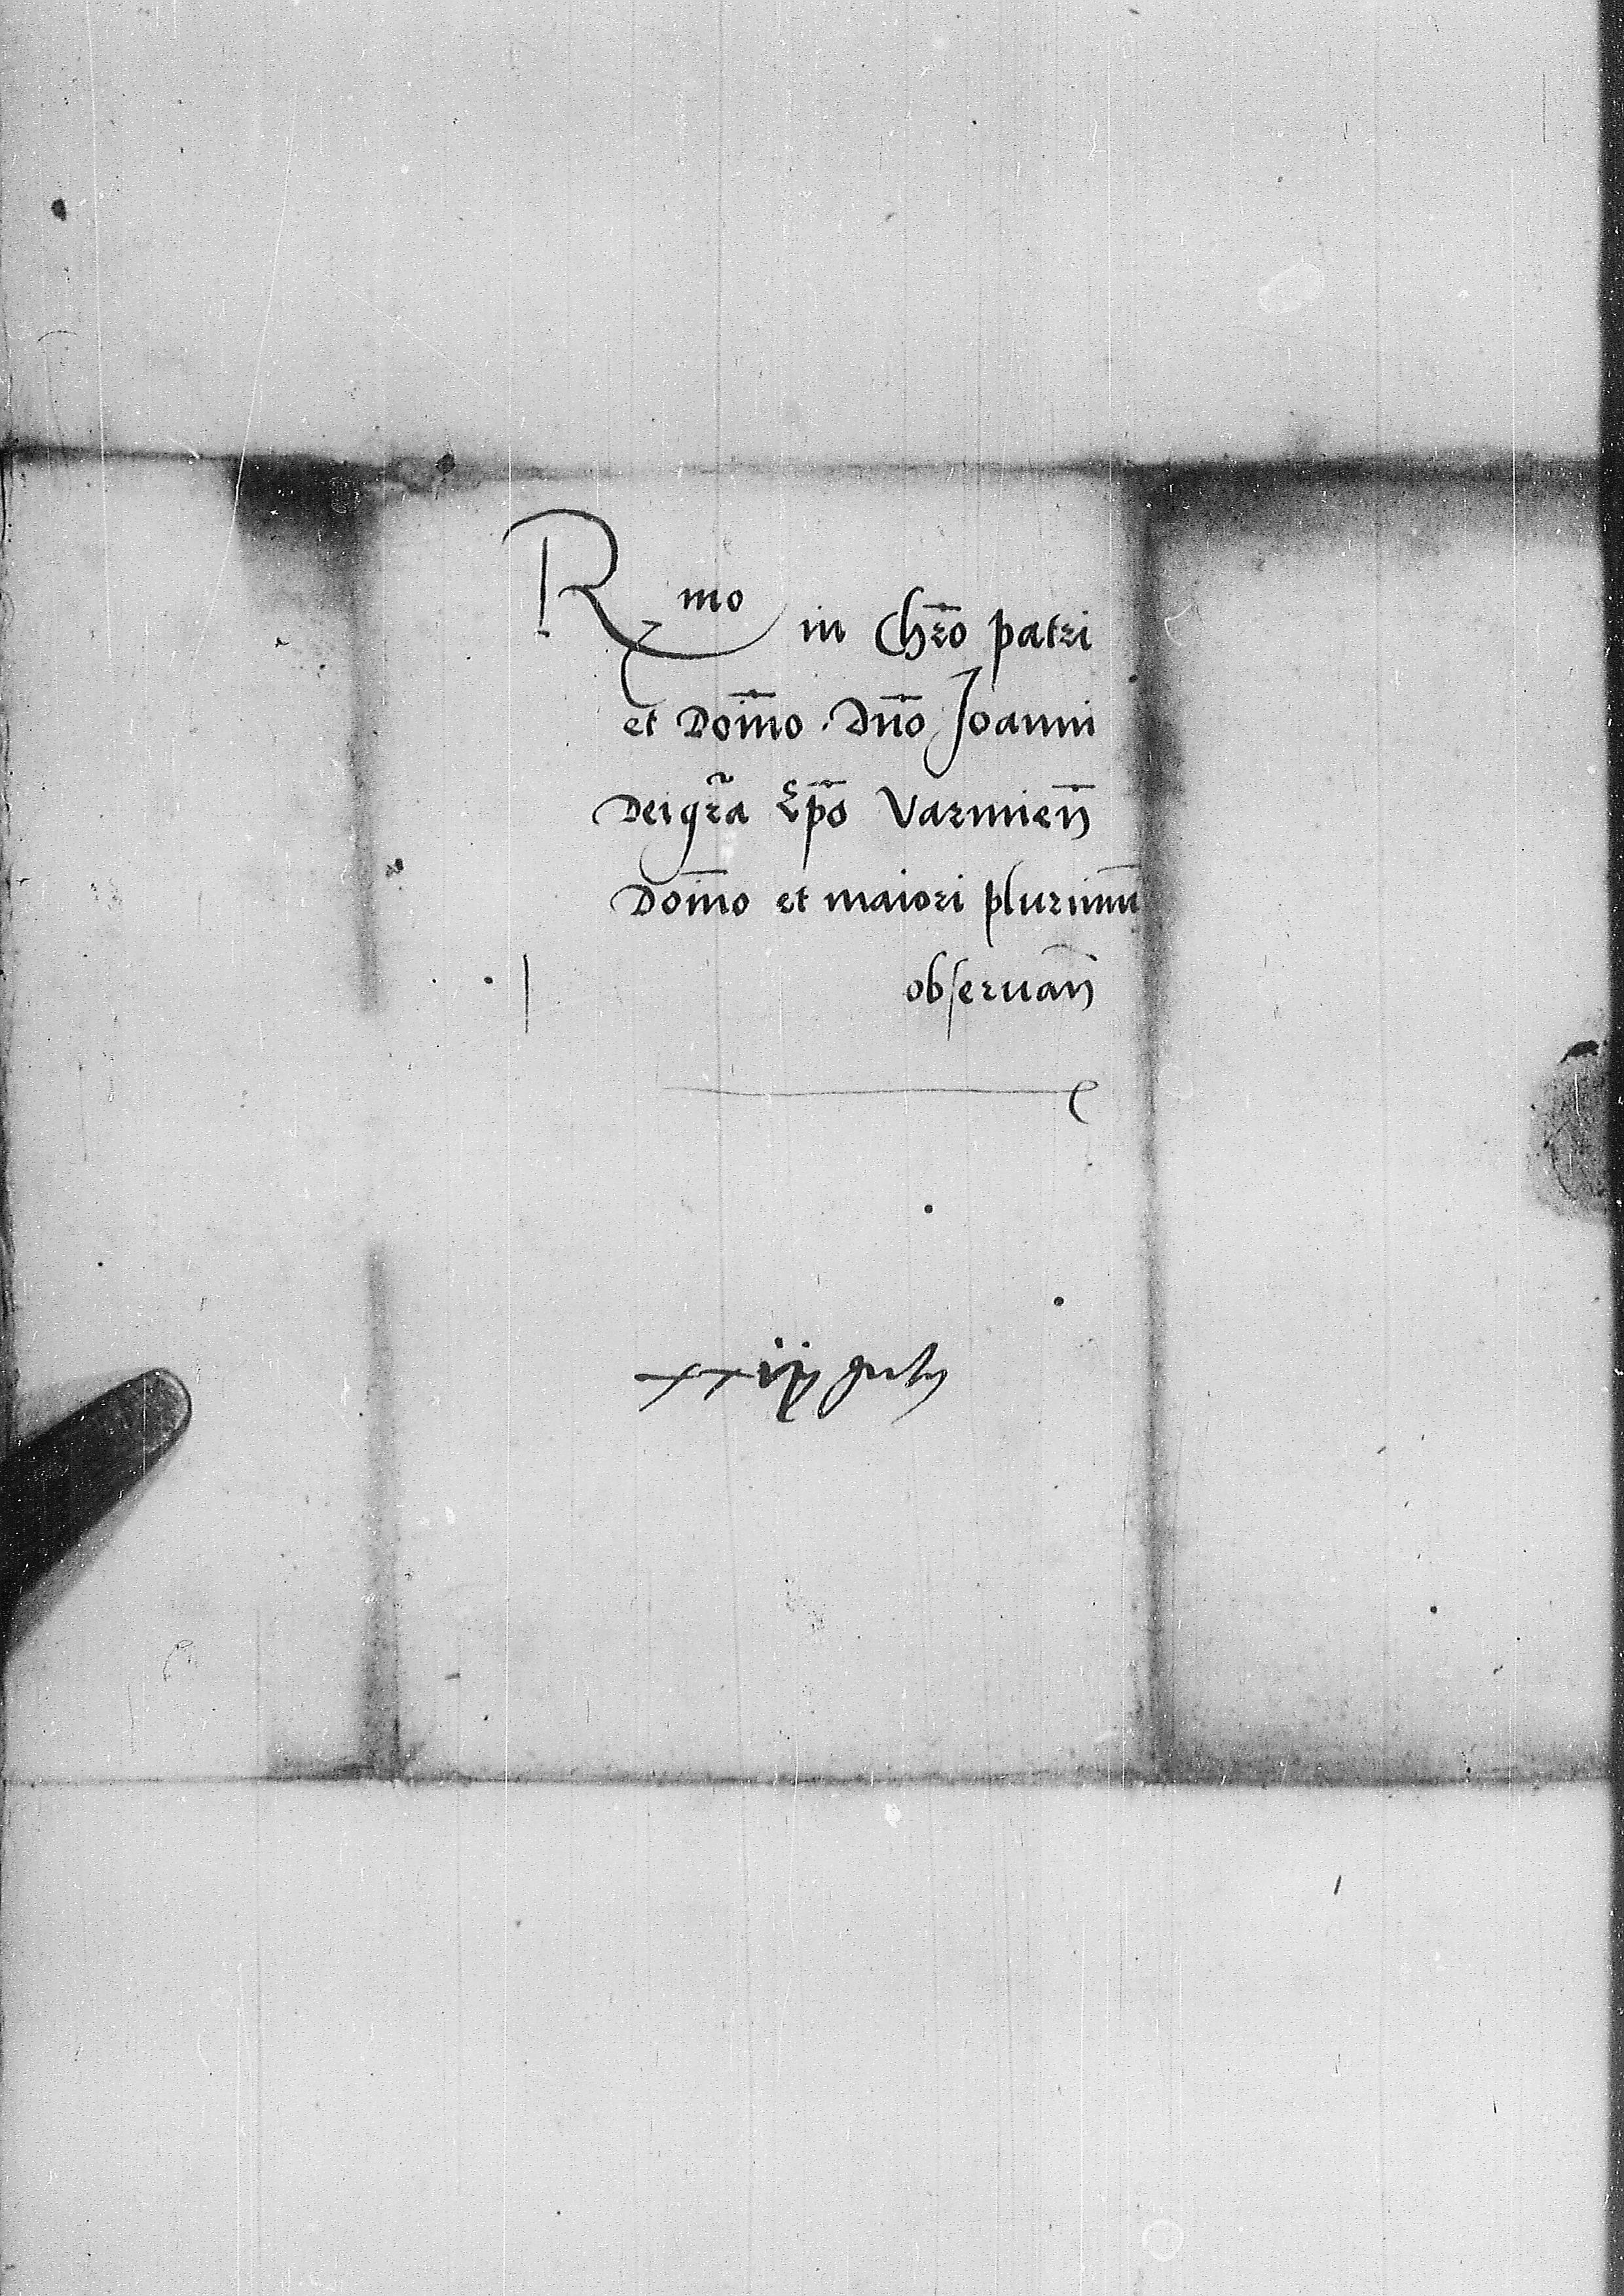 Rmo in Chr̄o patri
et Domīno. Dn̄o Joanni
Dei gr̄a Ep̄o Varmien̄
Domīno et maiori plurimū
observan̄